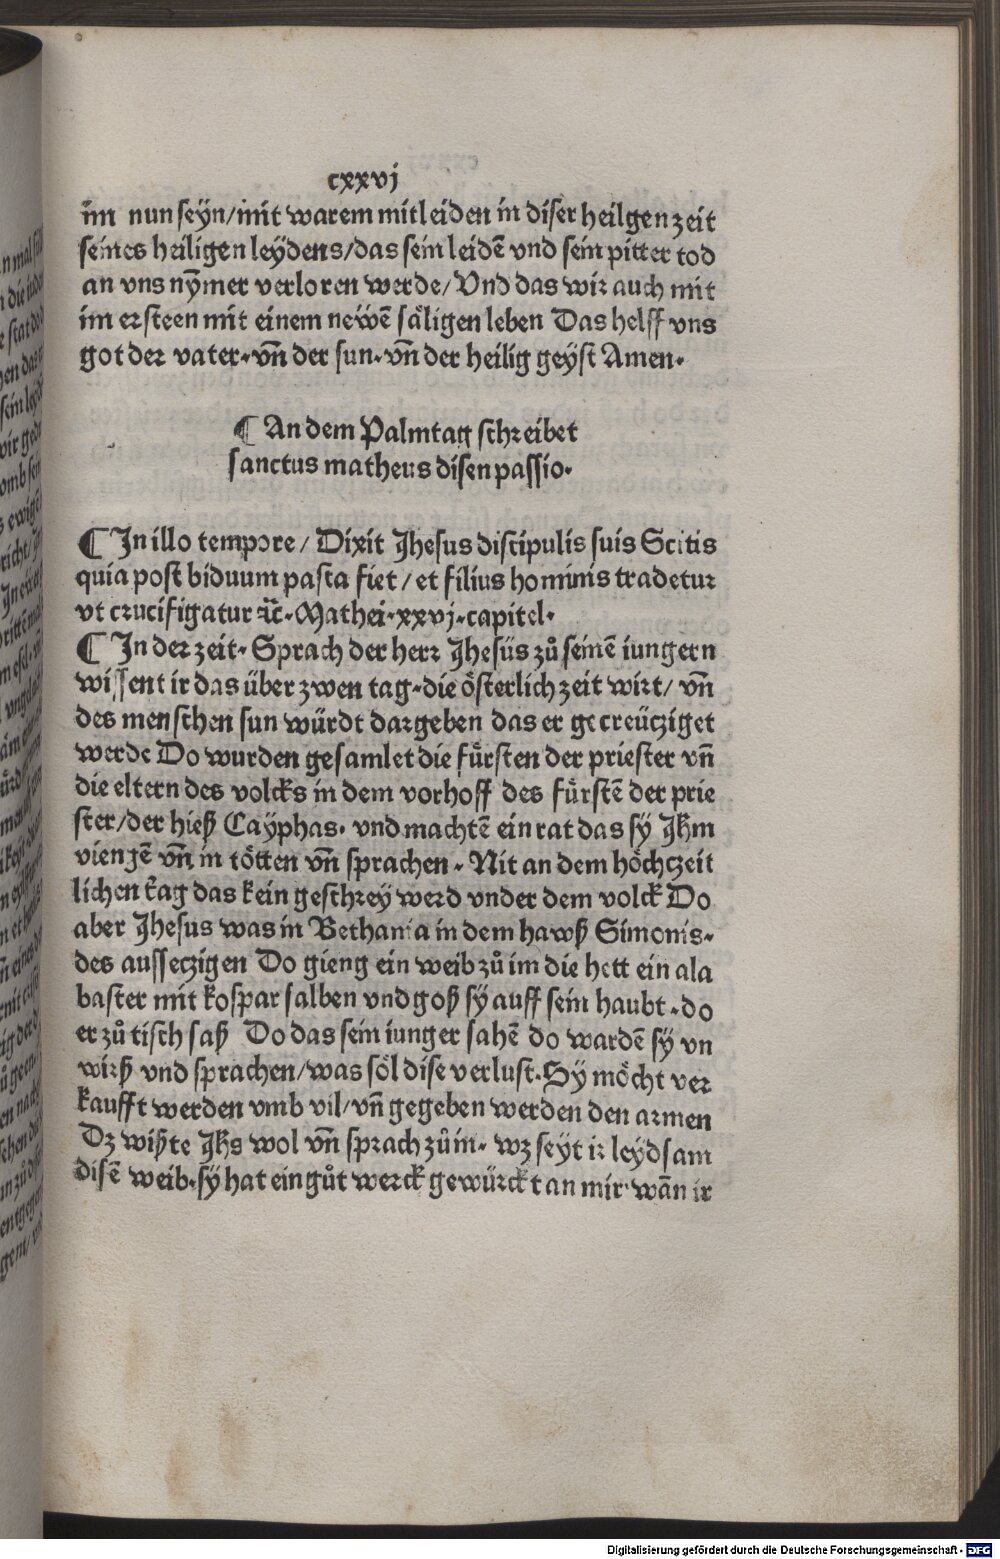 cxxvj
im nun seÿn/mit warem mitleiden in diser heilgen zeit
seines heiligen leÿdens/das sein leidē vnd sein pitter tod
an vns nÿmer verloren werde/Vnd das wir auch mit
im ersteen mit einem neẅē säligen leben Das helff vns
got der vater·vn̄ der sun·vn̄ der heilig geÿst Amen·
¶ An dem Palmtag schreibet
sanctus matheus disen passio·
¶ In illo tempore/ Dixit Jhesus discipulis suis Scitis
quia post biduum pasca fiet/et filius hominis tradetur
vt crucifigatur ꝛc̄·Mathei·xxvj·capitel·
¶ In der zeit·Sprach der herr Jhesüs zů seinē iungern
wissent ir das über zwen tag·die österlich zeit wirt/ vn̄
des menschen sun würdt dargeben das er gecreücziget
werde Do wurden gesamlet die fürsten der priester vn̄
die eltern des volcks in dem vorhoff des fürstē der prie
ster/der hieß Caÿphas· vnd machtē ein rat das sÿ Jhm
viengē vn̄ in tötten vn̄ sprachen·Nit an dem höchczeit
lichen tag das kein geschreÿ werd vnder dem volck Do
aber Jhesus was in Bethania in dem hawß Simonis·
des aussetzigen Do gieng ein weib zů im die hett ein ala
baster mit kospar salben vnd goß sÿ auff sein haubt·do
er zů tisch saß Do das sein iunger sahē do wardē sÿ vn
wirß vnd sprachen/was söl dise verlust·Sÿ möcht ver
kaufft werden vmb vil/vn̄ gegeben werden den armen
Dz wißte Jhs wol vn̄ sprach zů in· wz seÿt ir leÿdsam
disē weib·sÿ hat ein gůt werck gewürckt an mir·wān ir
Digitalisierung gefördert durch die Deutsche Forschungsgemeinschaft - DFG